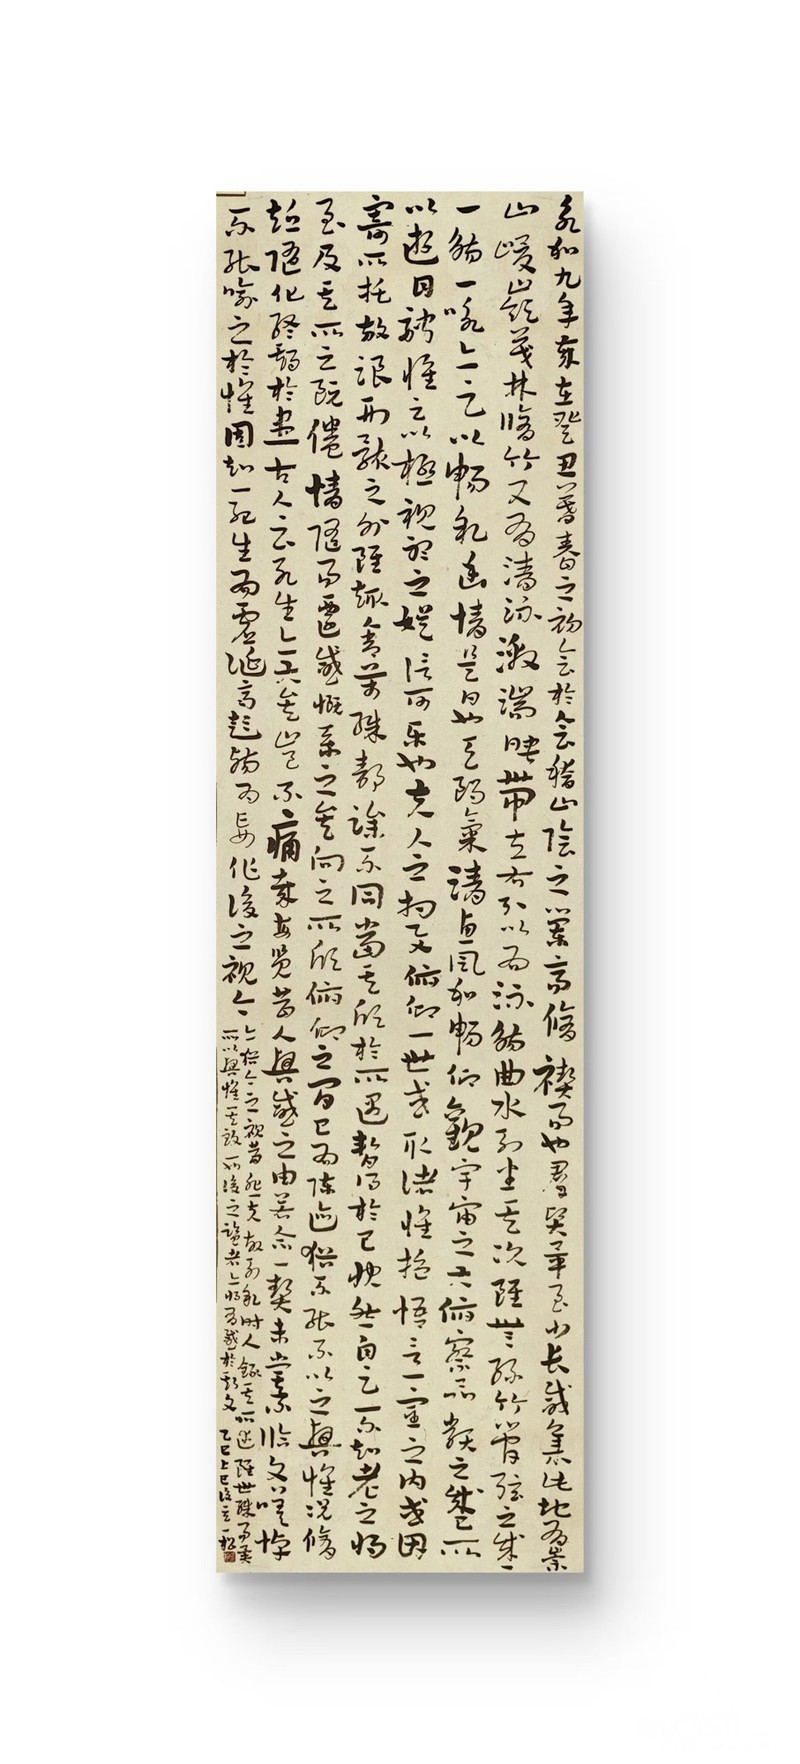 永和九年歲在癸丑暮春之初會於會稽山陰之蘭亭修禊事也群賢畢至少長咸集此地有崇
山峻嶺茂林修竹又有清流激湍映帶左右引以為流觴曲水列坐其次雖無絲竹管弦之盛
一觴一詠亦足以暢敘幽情是日也天朗氣清惠風和暢仰觀宇宙之大俯察品類之盛所
以遊目騁懷足以極視聽之娛信可樂也夫人之相與俯仰一世或取諸懷抱悟言一室之內或因
寄所托放浪形骸之外雖趣舍萬殊靜躁不同當其欣於所遇暫得於己快然自足不知老之將
至及其所之既倦情隨事遷感慨係之矣向之所欣俯仰之間已為陳迹猶不能不以之興懷況修
短隨化終期於盡古人云死生亦大矣豈不痛哉每覽昔人興感之由若合一契未嘗不臨文嗟悼
不能喻之於懷固知一死生為虛誕齊彭殤為妄作後之視今
亦猶今之視昔悲夫故列敘時人錄其所述雖世殊事異
所以興懷其致一也後之攬者亦將有感於斯文 乙巳上巳後